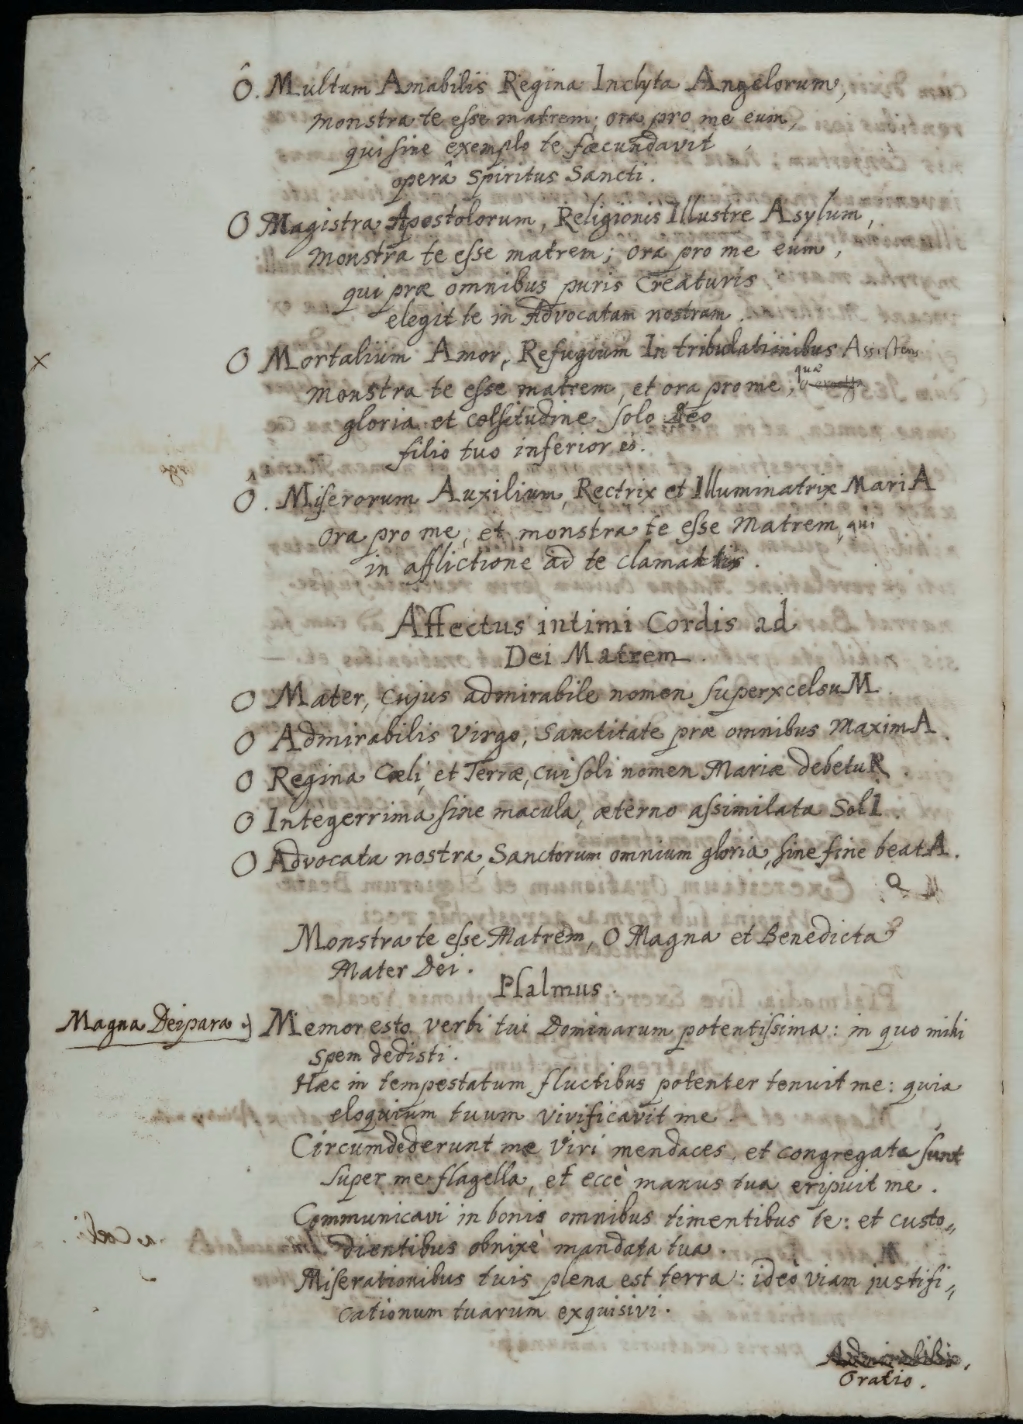 Ô. Multum Amabilis Regina Inclyta Angelorum,
monstra te esse matrem; ora pro me eum,
qui sine exemplo te fœcundavit
operâ Spiritus Sancti.
O Magistra Apostolorum, Religionis Illustre Asylum,
monstra te esse matrem; ora pro me eum,
qui præ omnibus puris Creaturis
elegit te in Advocatam nostram.
x
O Mortalium Amor, Refugium In tribulationibus
quæ
monstra te esse matrem, et ora pro me,
gloria et celsitudine solo Deo
filio tuo inferior es.
Ô. Miserorum Auxilium, Rectrix et Illuminatrix MariA
ora pro me, et monstra te esse Matrem, qui
in afflictione ad te
Affectus intimi Cordis ad
Dei Matrem.
O Mater, cujus admirabile nomen superxcelsuM
O Admirabilis Virgo, Sanctitate præ omnibus MaximA.
O Regina Cœli, et Terræ, cui soli nomen Mariæ debetuR.
O Integerrima sine macula, æterno assimilata SolI.
O Advocata nostra, Sanctorum omnium gloria, sine fine beatA.
Monstra te esse Matrem, O Magna et Benedicta
Mater Dei.
Psalmus.
Magna Deipara.
Memor esto verbi tui Dominarum potentissima: in quo mihi
spem dedisti.
Hæc in tempestatum fluctibus potenter tenuit me: quia
eloquium tuum vivificavit me.
Circumdederunt me viri mendaces, et congregata sunt
super me flagella, et eccè manus tua eripuit me.
Communicavi in bonis omnibus timentibus te: et custo„
dientibus obnixè mandata tua.
Miserationibus tuis plena est terra: ideò viam justifi„
cationum tuarum exquisivi.
Admirabilis.
Oratio.